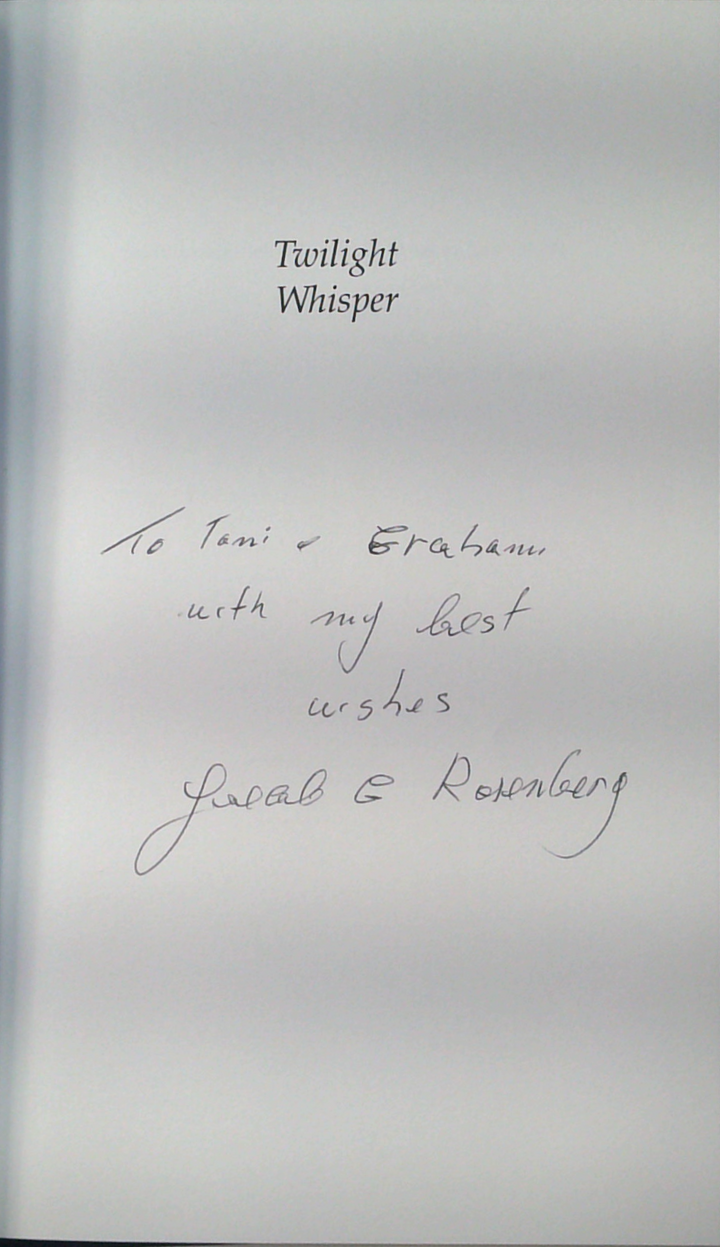 Twilight
Whisper
To Tani & Graham
with my best
wishes
Jacob G Rosenberg